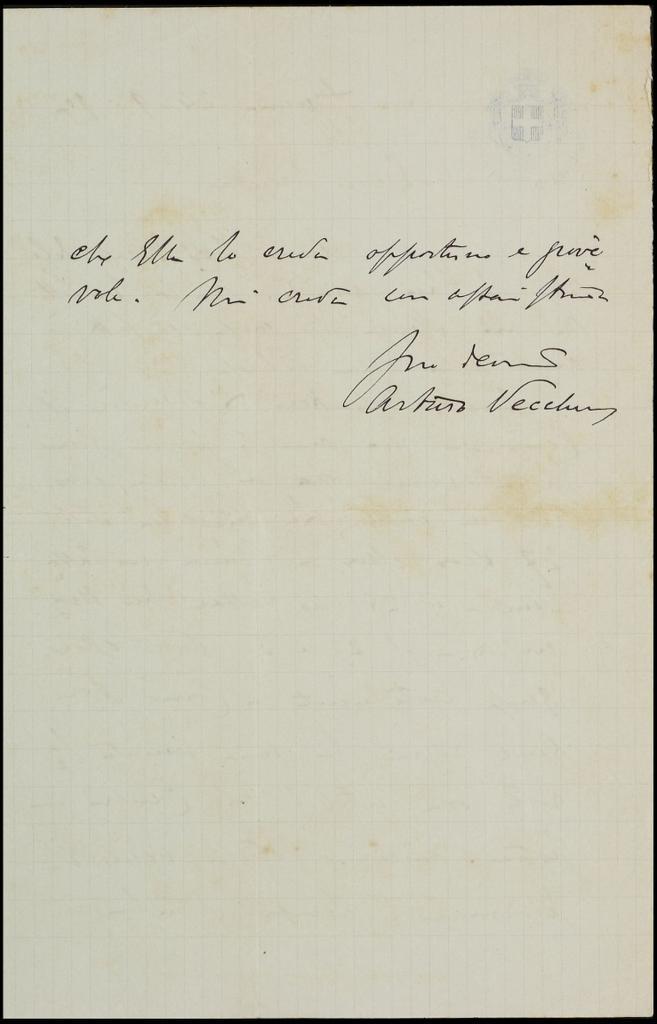 che Ella lo creda opportuno e giove
vole. Mi creda con assai stima
Suo devmo
Arturo Vecchini